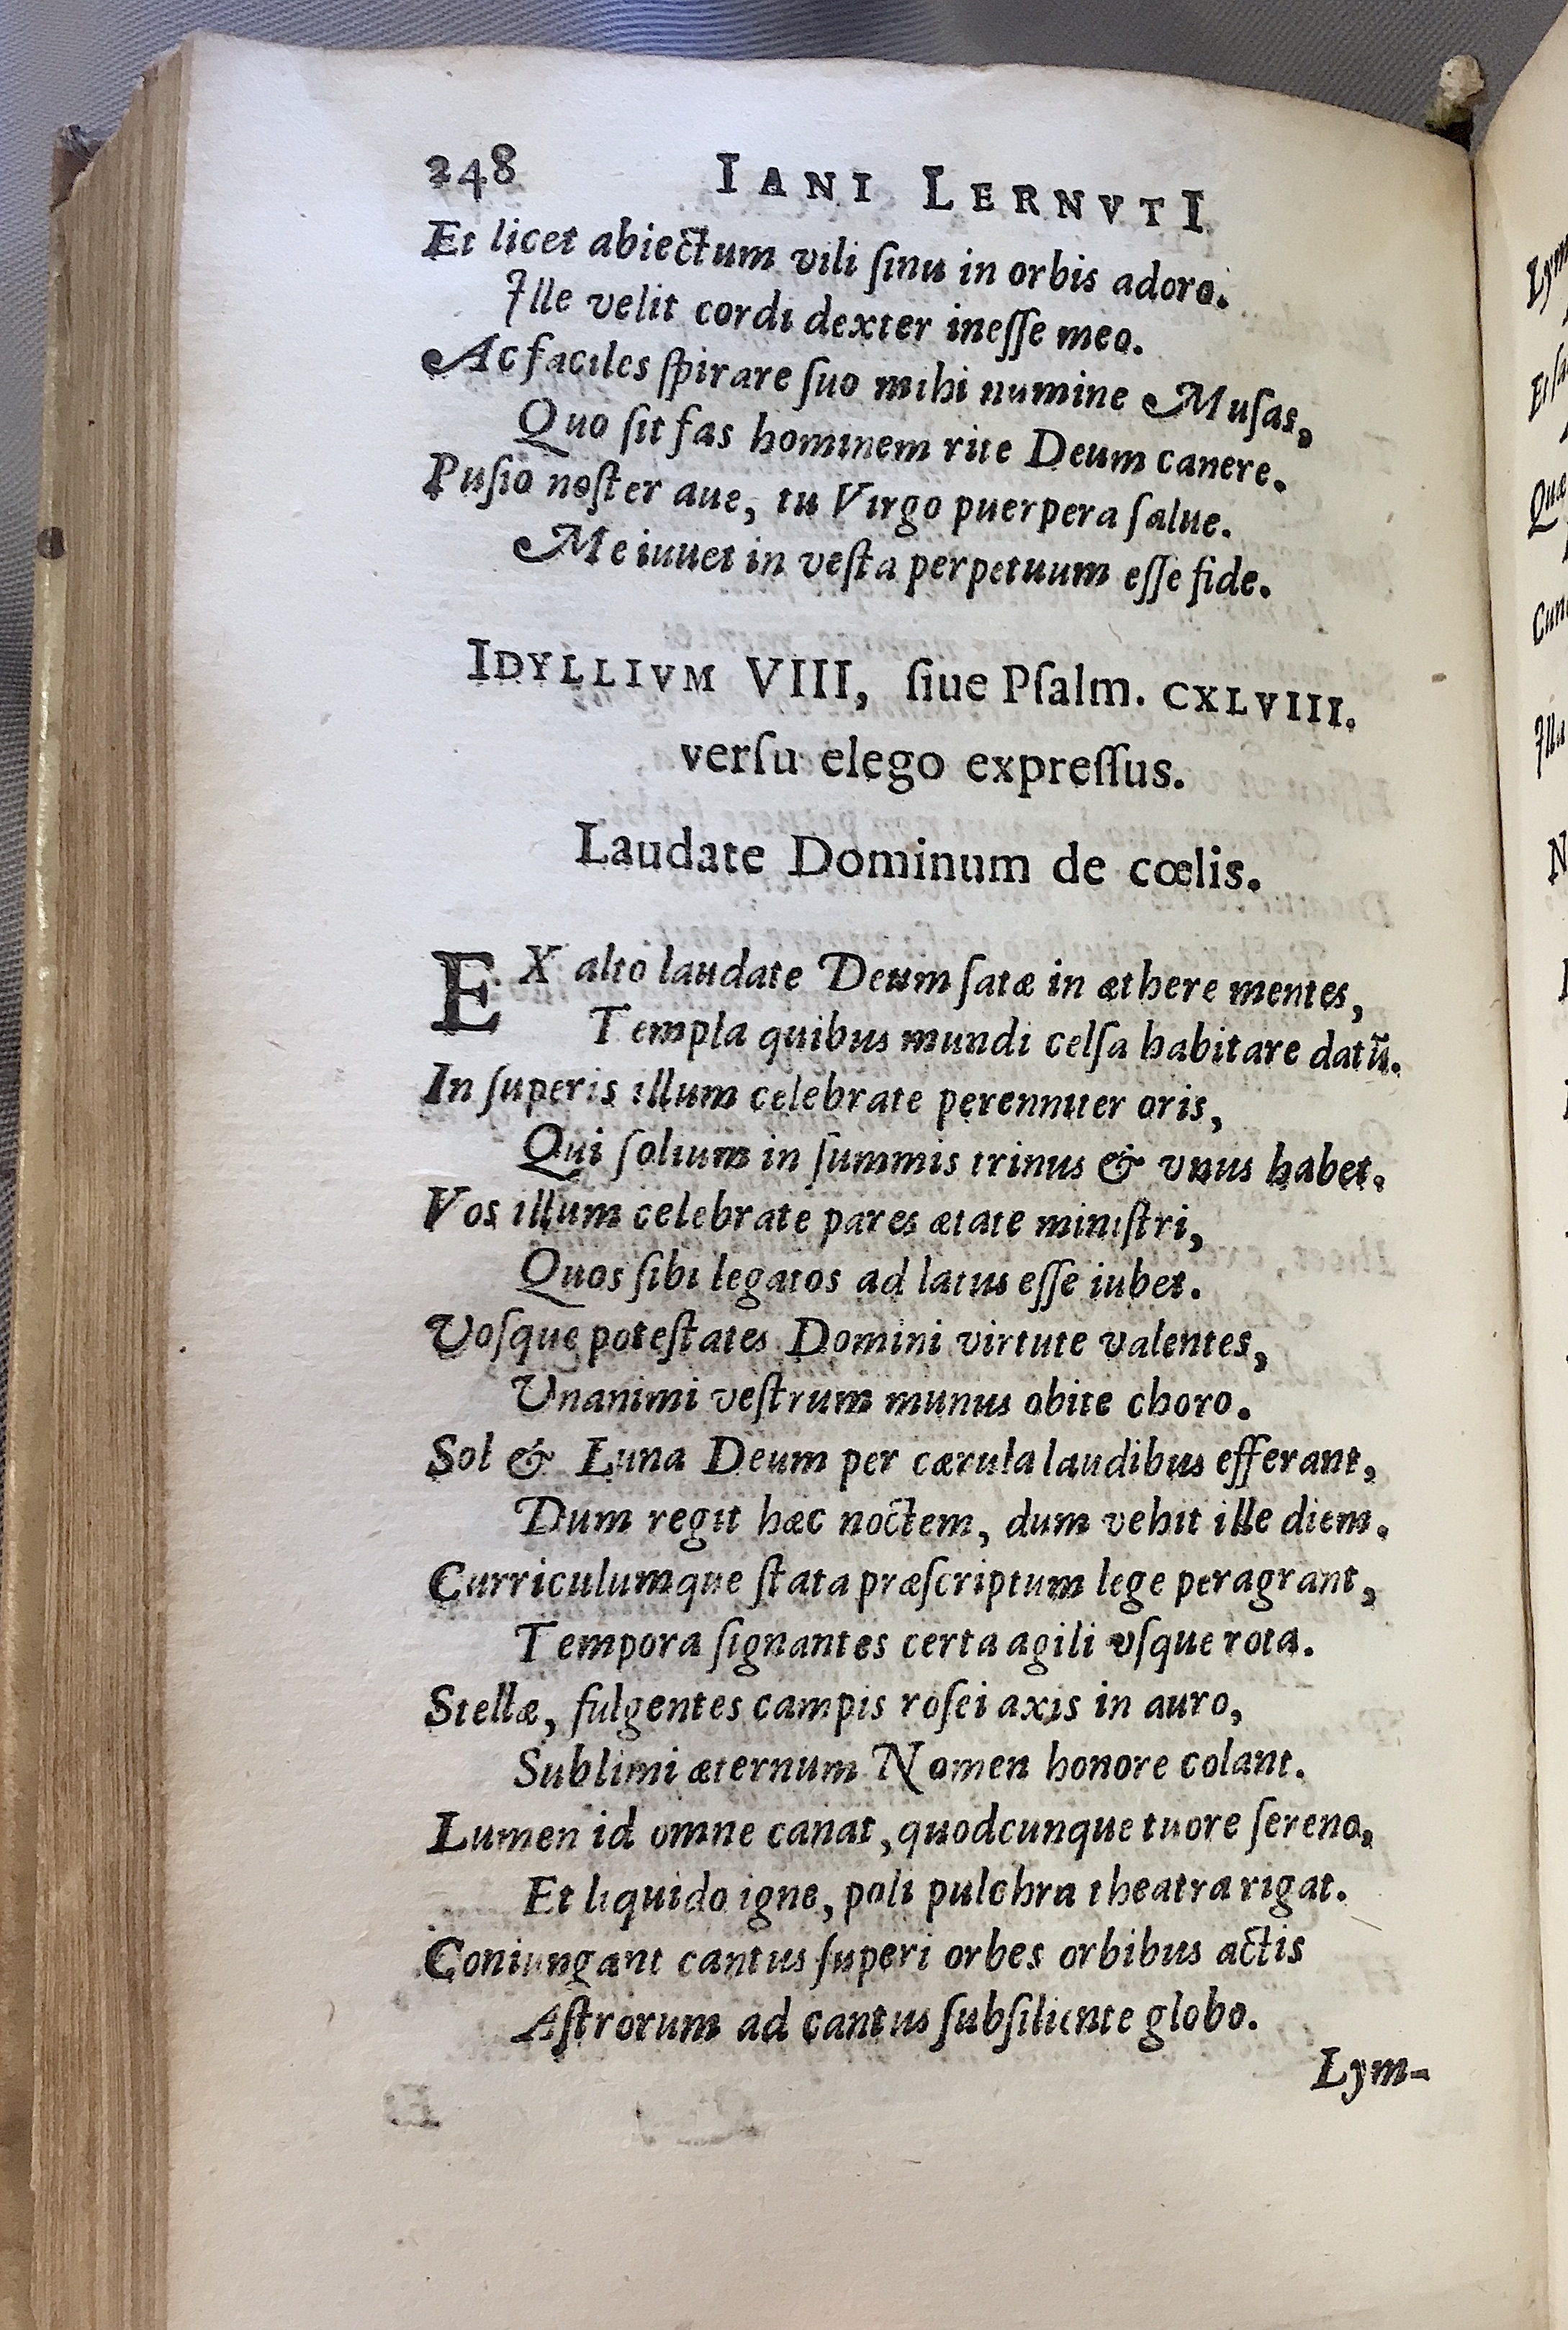 248 IANI LERNVTI
Et licet abiectum vili ſinu in orbis adoro.
Ille velit cordi dexter ineſſe meo.
Ac faciles ſpirare ſuo mihi numine Muſas,
Quo ſit fas hominem rite Deum canere.
Puſio noſter aue, tu Virgo puerpera ſalue.
Me iuuet in veſta perpetuum eſſe fide.
IDYLLIVM VIII, ſiue Pſalm. CXLVIII.
verſu elego expreſſus.
Laudate Dominum de cœlis.
EX alto laudate Deum ſatæ in æthere mentes,
Templa quibus mundi celſa habitare datū.
In ſuperis illum celebrate perenniter oris,
Qui ſolium in ſummis trinus & vnus habet.
Vos illum celebrate pares ætate miniſtri,
Quos ſibi legatos ad latus eſſe iubet.
Voſque poteſtates Domini virtute valentes,
Unanimi veſtrum munus obite choro.
Sol & Luna Deum per cærula laudibus efferant,
Dum regit hæc noctem, dum vehit ille diem.
Curriculumque ſtata præſcriptum lege peragrant,
Tempora ſignantes certa agili vſque rota.
Stellæ, fulgentes campis roſei axis in auro,
Sublimi æternum Nomen honore colant.
Lumen id omne canat, quodcunque tuore ſereno,
Et liquido igne, poli pulchra theatra rigat.
Coniungant cantus ſuperi orbes orbibus actis
Aſtrorum ad cantus ſubſiliente globo.
Lym-